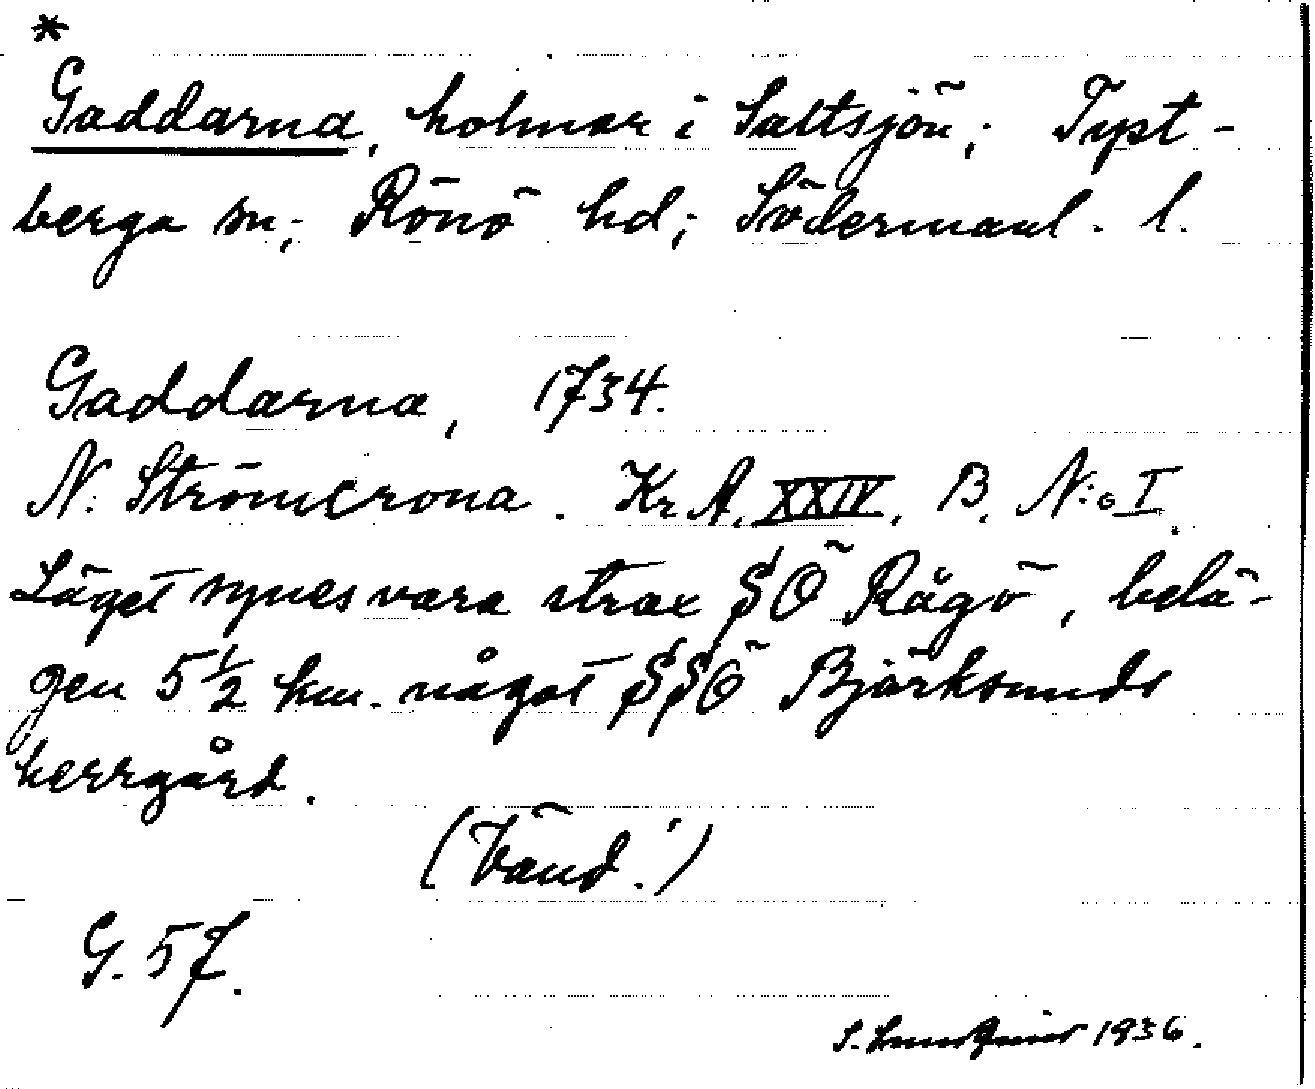 *
Gaddarna, holmar i Saltsjön; Tyst-
berga sn; Rönö hd; Södermanl. l.
Gaddarna, 1734.
N. Strömcrona. Kr A. XXIV. B. N:o I.
Läget synes vara strax SÖ Rågö, belä-
gen 5 1/2 km. något SSÖ Björksunds
herrgård.
(Vänd!)
G. 57.
S. 1936.